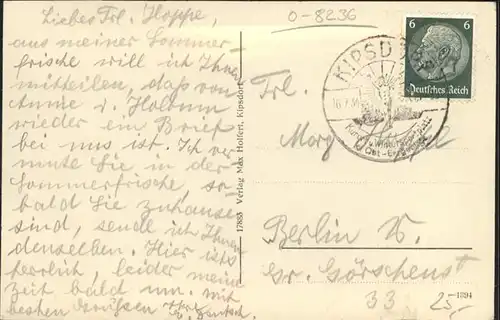 Liebes Frl. Hoppe,
aus meiner Sommer
frische will ich Ihnen
mitteilen, daß von
Anne v. Holtum
wieder ein Brief
bei uns ist. Ich ver
mute Sie in der
Sommerfrische, so-
bald Sie zuhause
sind, sende ich Ihnen
denselben. Hier ists
herrlich, leider meine
Zeit bald um. Mit
besten Grüßen Ihr
17885 Verlag Max Holfert, Kipsdorf
0-8236
6 6
Deutsches Reich
KIPSDORF
Frl.
Marg. Hoppe
Berlin W.
Gr. Görschenst
33
-1394
25,-